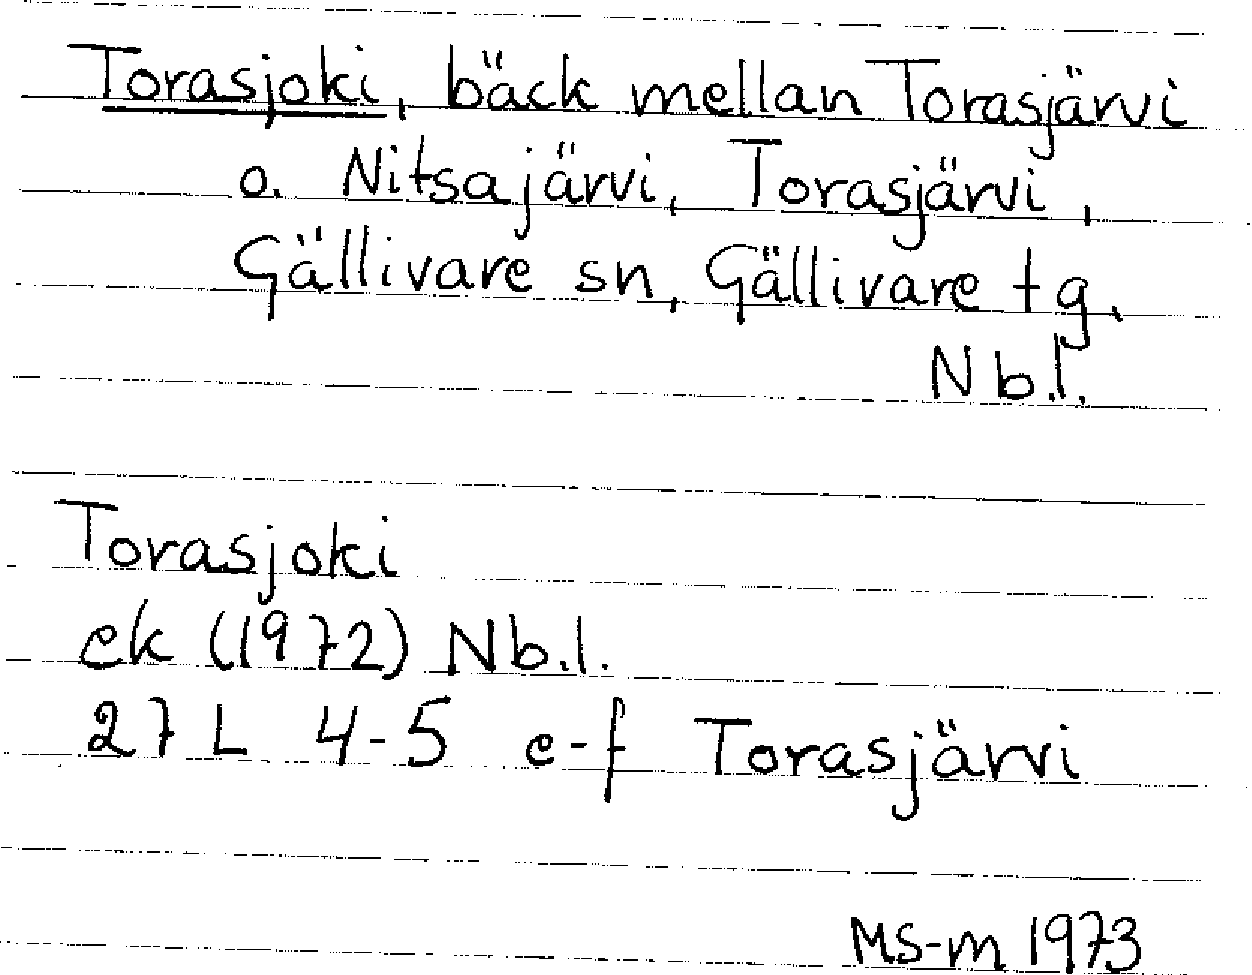 Torasjoki, bäck mellan Torasjärvi
o. Nitsajärvi, Torasjärvi,
Gällivare sn, Gällivare tg,
Nb.l.
Torasjoki
ek (1972) Nb.l.
27 L 4-5 e-f Torasjärvi
MS-m 1973